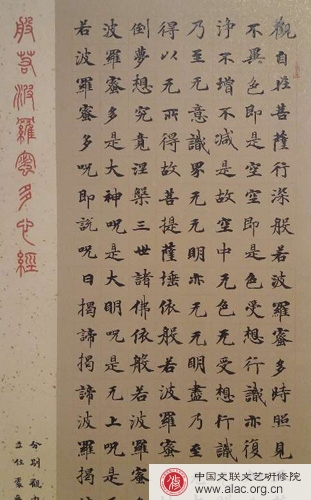 觀自在菩薩行深般若波羅蜜多時照見
不異色即是空空即是色受想行識亦復
淨不增不減是故空中无色无受想行識
乃至无意識界无无明亦无无明盡乃至
得以无所得故菩提薩埵依般若波羅蜜
倒夢想究竟涅槃三世諸佛依般若波羅蜜
波羅蜜多是大神咒是大明咒是无上咒是
若波羅蜜多咒即說咒曰揭諦揭諦波羅揭
般若波羅蜜多心經
中国文联文艺研修院
www.alac.org.cn